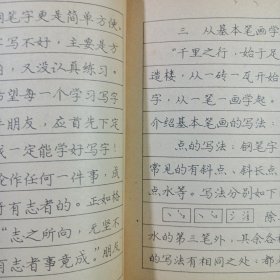 钢笔字更是简单方便。
字写不好，主要是方
，又没认真练习。
希望每一个学习写字
年朋友，应首先下定
我一定能学好写字！
论作任何一件事，成
于有志者的。正如格
“志之所向，无坚不
“有志者事竟成。”朋友
三 从基本笔画学
“千里之行，始于足
造楼，从一砖一瓦开始
字，从一笔一画学起。
介绍基本笔画的写法：
点的写法：钢笔字
常见的有斜点、斜长点
点水等。写法分别如下
除
水的第三笔外，其余各
写法有相同之处：都